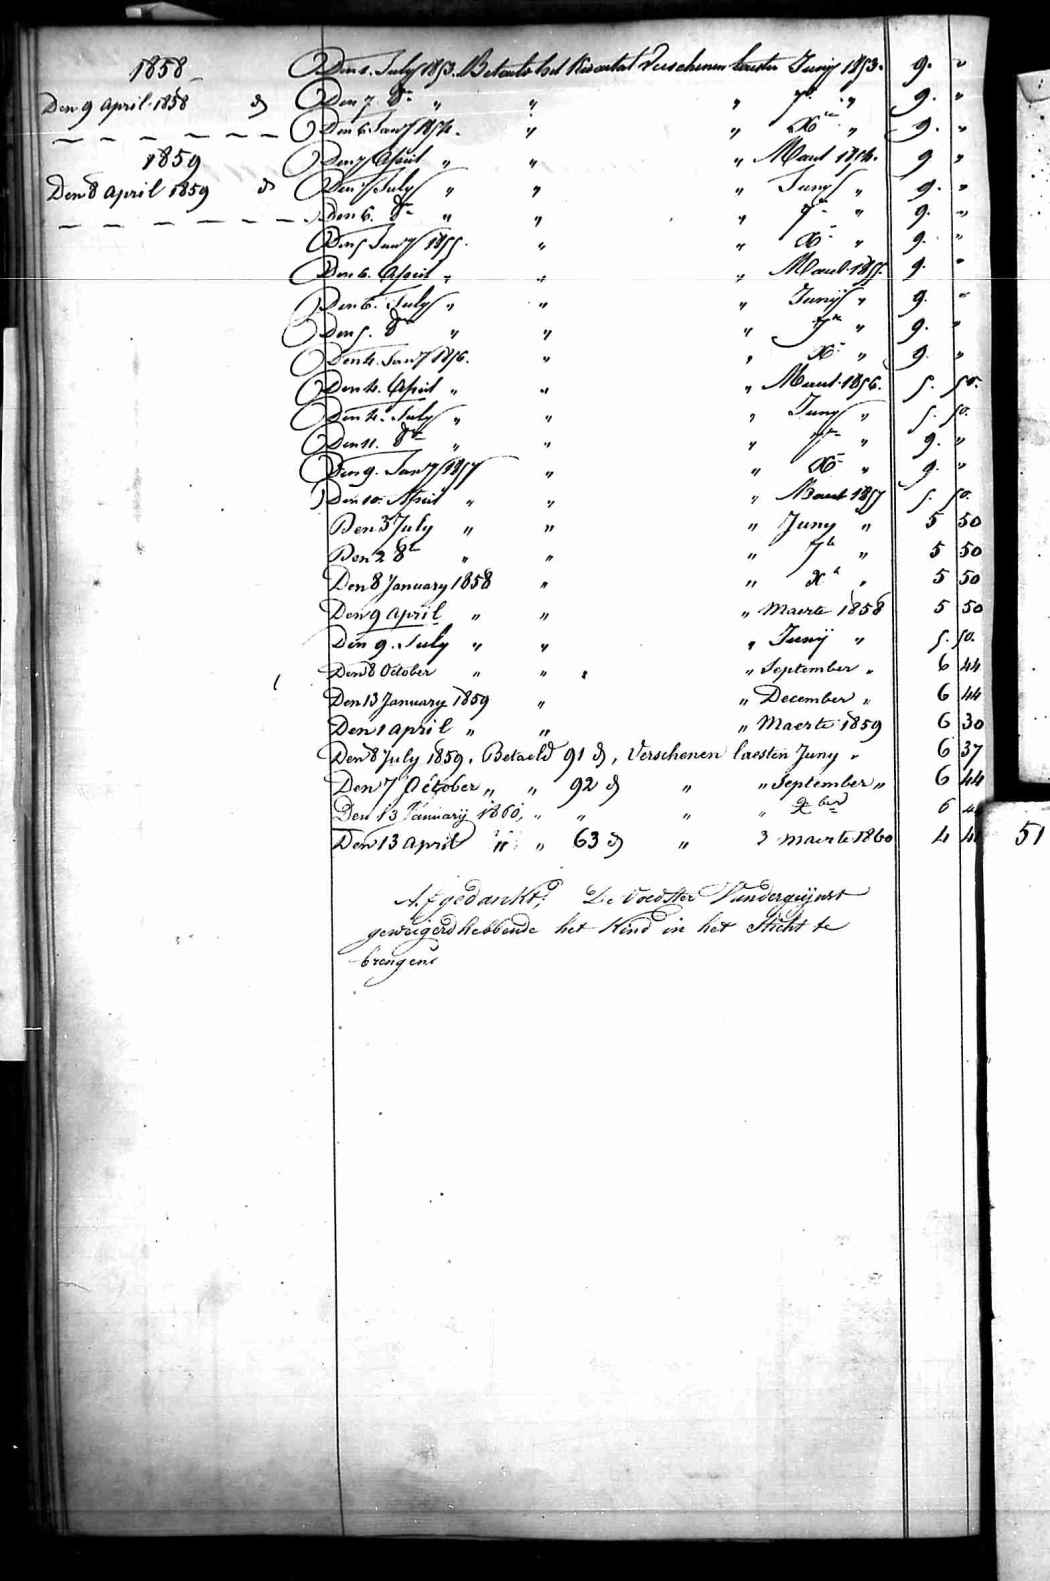 1858
Den 9 april 1858 d
1859
Den 8 april 1859 d
Den 1. July 1853. Betaald het Kwartal Verschenen laesten Juny 1853. 9. "
Den 7. 8re " " " 7re " 9. "
Den 6. Jany 1854. " " Xre " 9. "
Den 7 April " " " Maart 1854. 9 "
Den 7 July " " " Juny " 9. "
Den 6. 8re " " " 7re " 9. "
Den 5 Jany 1855. " " Xre " 9. "
Den 6. April " " " Maart 1855. 9. "
Den 6. July " " " Juny " 9. "
Den 5. 8re " " " 7re " 9. "
Den 4. Jany 1856. " " Xre " 9. "
Den 4. April " " " Maart 1856. 5. 50.
Den 4. July " " " Juny " 5. 50.
Den 11. 8re " " " 7re " 9. "
Den 9. Jany 1857 " " Xre " 9. "
Den 10. April " " " Maart 1857 5. 50.
Den 3 July " " " Juny " 5 50
Den 2 8re " " " 7re " 5 50
Den 8 January 1858 " " Xre " 5 50
Den 9 april " " " Maerte 1858 5 50
Den 9. July " " " Junij " 5. 50.
Den 8 October " " " " September " 6 44
Den 13 January 1859 " " December " 6 44
Den 1 april " " " Maerte 1859 6 30
Den 8 July 1859. Betaeld 91 d, Verschenen laesten Juny " 6 37
Den 7 October " " 92 d " " September " 6 44
Den 13 Januarij 1860, " " " " Xber 6 4
Den 13 april " " 63 d " 3 maerte 1860 4 41
51
Afgedankt, De Voedster Vanderguijnst
geweigerd hebbende het Kind in het Sticht te
brengen